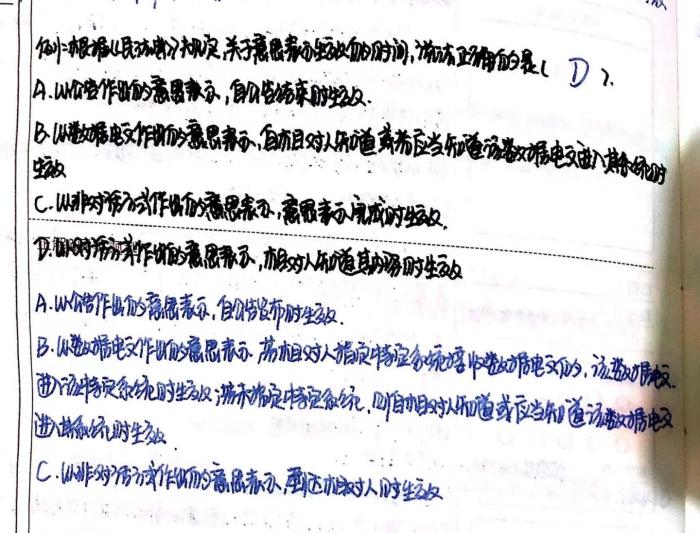 例1:根据《民法典》规定,关于意思表示生效的时间,说法正确的是( D ).
A.以公告作出的意思表示,自公告结束时生效.
B.以数据电文作出的意思表示,自相对人知道或者应当知道该数据电文进入其系统时
生效
C.以非对话方式作出的意思表示,意思表示完成时生效.
D.以对话方式作出的意思表示,相对人知道其内容时生效
A.以公告作出的意思表示,自公告发布时生效.
B.以数据电文作出的意思表示.若相对人指定特定系统接收数据电文的,该数据电文
进入该特定系统时生效;若未指定特定系统,则自相对人知道或应当知道该数据电文
进入其系统时生效.
C.以非对话方式作出的意思表示,到达相对人时生效